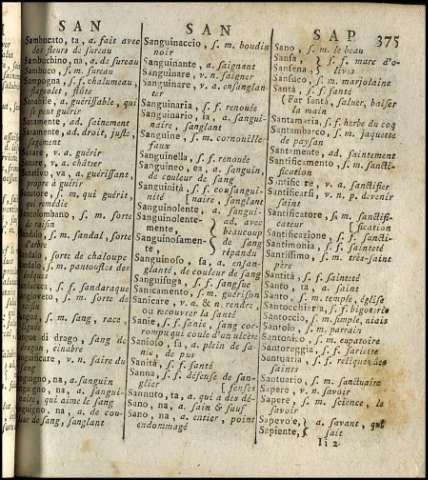 SAN
SAN
SAP
375
Sambucato, ta, a. fait avec
des fleurs de sureau
Sambuchino, na, a. de sureau
Sambuco, s. m. sureau
Sampogna, s. f. chalumeau,
flageolet, flûte
Sanabile, a. guérissable, qui
se peut guérir
ad. sainement
ad. droit, juste,
sagement
Sanare, v. a. guérir
v. a. châtrer
va, a. guérissant,
propre à guérir
s. m. qui guérit,
qui remédie
s. m. sorte
de raisin
s. m. sandal, sorte
d'arbre
sorte de chaloupe
s. m. pantoufle des
s. f. sandaraque
s. m. sorte de
s. m. sang, race,
di drago, sang de
dragon, cinabre
v. n. faire du
sang
na, a. sanguin
na, a. sangui-
qui aime le sang
na, a. de cou-
leur de sang, sanglant
Sanguinaccio, s. m. boudin
noir
Sanguinante, a. saignant
Sanguinare, v. n. saigner
Sanguinare, v. a. ensanglan-
ter
Sanguinaria, s. f. renouée
Sanguinario, ia, a. sangui-
naire, sanglant
Sanguine, s. m. cornouille-
Sanguinella, s. f. renouée
Sanguineo, ea, a. sanguin,
de couleur de sang
Sanguinità, s. f. consangui-
nité [naire, sanglant
Sanguinolente, a. sangui-
Sanguinolente-
mente,
Sanguinosamen-
te,
ad. avec
beaucoup
de sang
répandu
Sanguinoso, sa, a. ensan-
glanté, de couleur de sang
Sanguisuga, s. f. sangsue
Sanicamento, s. m. guérison
Sanicare, v. a. & n. rendre,
ou recouvrer la santé
Sanie, s. f. sanie, sang cor-
rompu qui coule d'un ulcère
Sanioso, sa, a. plein de sa-
nie, de pus
Sanità, s. f. santé
Sanna, s. f. défense de san-
glier [fenses
Sannuto, ta, a. qui a des dé-
Sano, na, a. sain & sauf
Sano, na, a. entier, point
endommagé
Sano, s. m. le beau
Sansa,
Sansena,
s. f. marc d'o-
lives
Sansuco, s. m. marjolaine
Santà, s. f. santé
(Far santà, saluer, baiser
la main
Santamaria, s. f. herbe du coq
Santambarco, s. m. jaquette
de paysan
Santamente, ad. saintement
Santificamento, s. m. sancti-
fication
Santificare, v. a. sanctifier
Santificarsi, v. n. p. devenir
saint
Santificatore, s. m. sanctifi-
cateur [fication
Santificazione, s. f. sancti-
Santimonia, s. f. sainteté
Santissimo, s. m. très-saint
père
Santità, s. f. sainteté
Santo, ta, a. saint
Santo, s. m. temple, église
Santocchieria, s. f. bigoterie
Santoccio, s. m. simple, niais
Santolo, s. m. parrain
Santonico, s. m. eupatoire
Santoreggia, s. f. sariette
Santuaria, s. f. reliques des
saints
Santuario, s. m. sanctuaire
Sapere, v. n. savoir
Sapere, s. m. science, le
savoir
Sapevole,
Sapiente,
a. savant, qui
sait
Ii 2